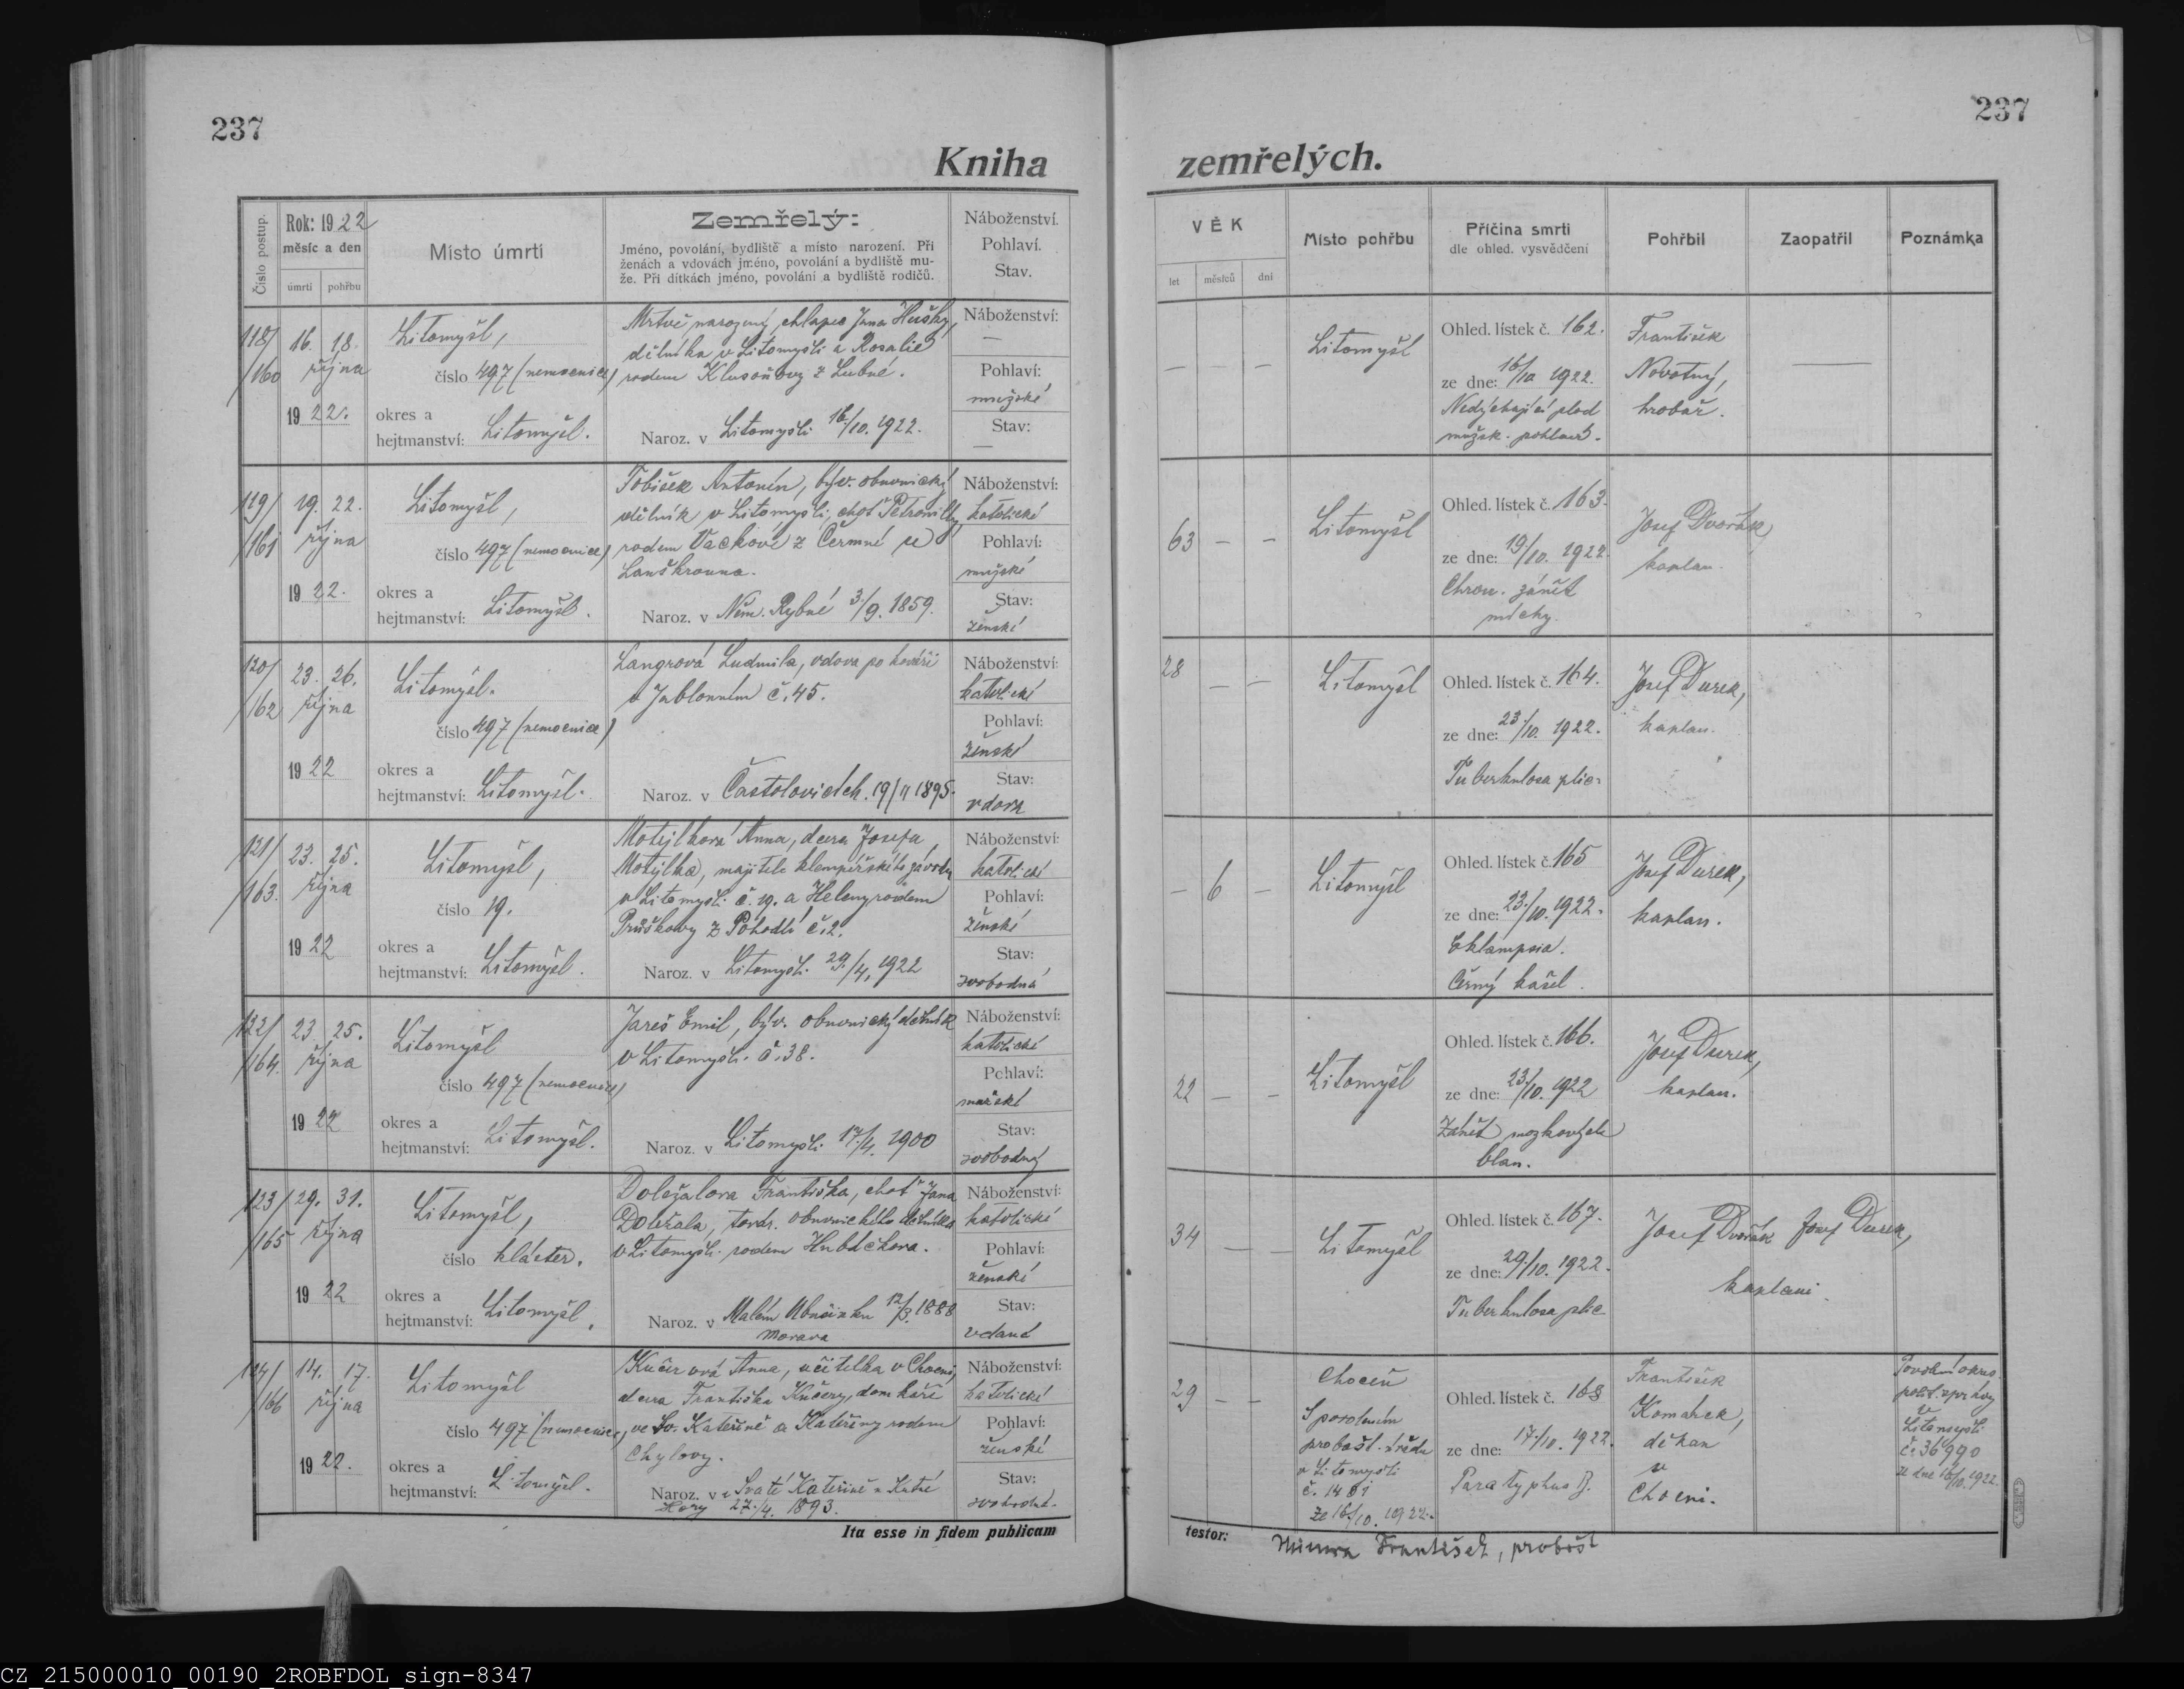 237
237
Kniha
zemřelých.
Číslo postup.
Rok: 1922
měsíc a den
úmrtí
pohřbu
Místo úmrtí
Zemřelý:
Jméno, povolání, bydliště a místo narození. Při
ženách a vdovách jméno, povolání a bydliště mu-
že. Při dítkách jméno, povolání a bydliště rodičů.
Náboženství.
Pohlaví.
Stav.
VĚK
let
měsíců
dní
Místo pohřbu
Příčina smrti
dle ohled. vysvědčení
Pohřbil
Zaopatřil
Poznámka
118/
/160
16. 18.
října
1922.
Litomyšl,
číslo 497 (nemocnice)
okres a
hejtmanství: Litomyšl.
Mrtvě narozený chlapec Jana Hušky,
dělníka v Litomyšli a Rosalie
rodem Klusoňovy z Lubné.
Naroz. v Litomyšli 16/10. 1922.
Náboženství:
—
Pohlaví:
mužské
Stav:
—
— — —
Litomyšl
Ohled. lístek č. 162.
ze dne: 16/10 1922.
Nedýchající plod
mužsk. pohlaví.
František
Novotný,
hrobař.
—
119/
/161
19. 22.
října
1922.
Litomyšl,
číslo 497 (nemocnice)
okres a
hejtmanství: Litomyšl.
Tobišek Antonín, býv. obuvnický
dělník v Litomyšli, choť Petronilly
rodem Vackové z Čermné u
Lanškrouna.
Naroz. v Něm. Rybné 3./9. 1859.
Náboženství:
katolické
Pohlaví:
mužské
Stav:
ženské
63 — —
Litomyšl
Ohled. lístek č. 163.
ze dne: 19/10. 1922.
Chron. zánět
míchy.
Josef Dvořák,
kaplan.
120/
/162
23. 26.
října
1922
Litomyšl.
číslo 497 (nemocnice)
okres a
hejtmanství: Litomyšl.
Langrová Ludmila, vdova po kováři
v Jablonném č. 45.
Naroz. v Častolovicích. 19/11 1895.
Náboženství:
katolické
Pohlaví:
ženské
Stav:
vdova
28 — —
Litomyšl
Ohled. lístek č. 164.
ze dne: 23/10. 1922.
Tuberkulosa plic.
Josef Durek,
kaplan.
121/
/163.
23. 25.
října
1922
Litomyšl,
číslo 19.
okres a
hejtmanství: Litomyšl.
Motýlková Anna, dcera Josefa
Motýlka, majitele klempířského závodu
v Litomyšli č. 19. a Heleny rodem
Průškovy z Pohodlí č. 2.
Naroz. v Litomyšli 29./4. 1922
Náboženství:
katolické
Pohlaví:
ženské
Stav:
svobodná
— 6 —
Litomyšl
Ohled. lístek č. 165
ze dne: 23./10. 1922.
Eklampsia.
Černý kašel.
Josef Durek,
kaplan.
122/
/164.
23. 25.
října
1922
Litomyšl
číslo 497 (nemocnice)
okres a
hejtmanství: Litomyšl.
Jareš Emil, býv. obuvnický dělník
v Litomyšli č. 38.
Naroz. v Litomyšli 17./4. 1900
Náboženství:
katolické
Pohlaví:
mužské
Stav:
svobodný
22 — —
Litomyšl
Ohled. lístek č. 166.
ze dne: 23/10. 1922
Zánět mozkových
blan.
Josef Durek,
kaplan.
123/
/165
29. 31.
října
1922
Litomyšl,
číslo klášter.
okres a
hejtmanství: Litomyšl.
Doležalova Františka, choť Jana
Doležala, továr. obuvnického dělníka
v Litomyšli rodem Hubáčkova.
Naroz. v Malém Újezdku 12/3. 1888
Morava
Náboženství:
katolické
Pohlaví:
ženské
Stav:
vdaná
34 — —
Litomyšl
Ohled. lístek č. 167.
ze dne: 29/10. 1922.
Tuberkulosa plic
Josef Dvořák Josef Durek,
kaplani.
124/
/166
14. 17.
října
1922.
Litomyšl
číslo 497 (nemocnice,
okres a
hejtmanství: Litomyšl.
Kučerová Anna, učitelka v Chocni,
dcera Františka Kučery, domkáře
ve Sv. Kateřině a Kateřiny rodem
Chylovy.
Naroz. v Svaté Kateřině u Kutné
Hory 27./4. 1893.
Náboženství:
katolické
Pohlaví:
ženské
Stav:
svobodná.
29 — —
Choceň
S povolením
probošt. úřadu
v Litomyšli
č. 1481
ze 16/10. 1922.
Ohled. lístek č. 168
ze dne: 17/10. 1922.
Paratyphus B.
František
Komárek,
děkan
v
Chocni.
Povolení okres.
polit. správy
v
Litomyšli
č. 36990
ze dne 16/10. 1922.
Ita esse in fidem publicam
testor:
František, probošt
CZ_215000010_00190_2ROBFDOL_sign-8347